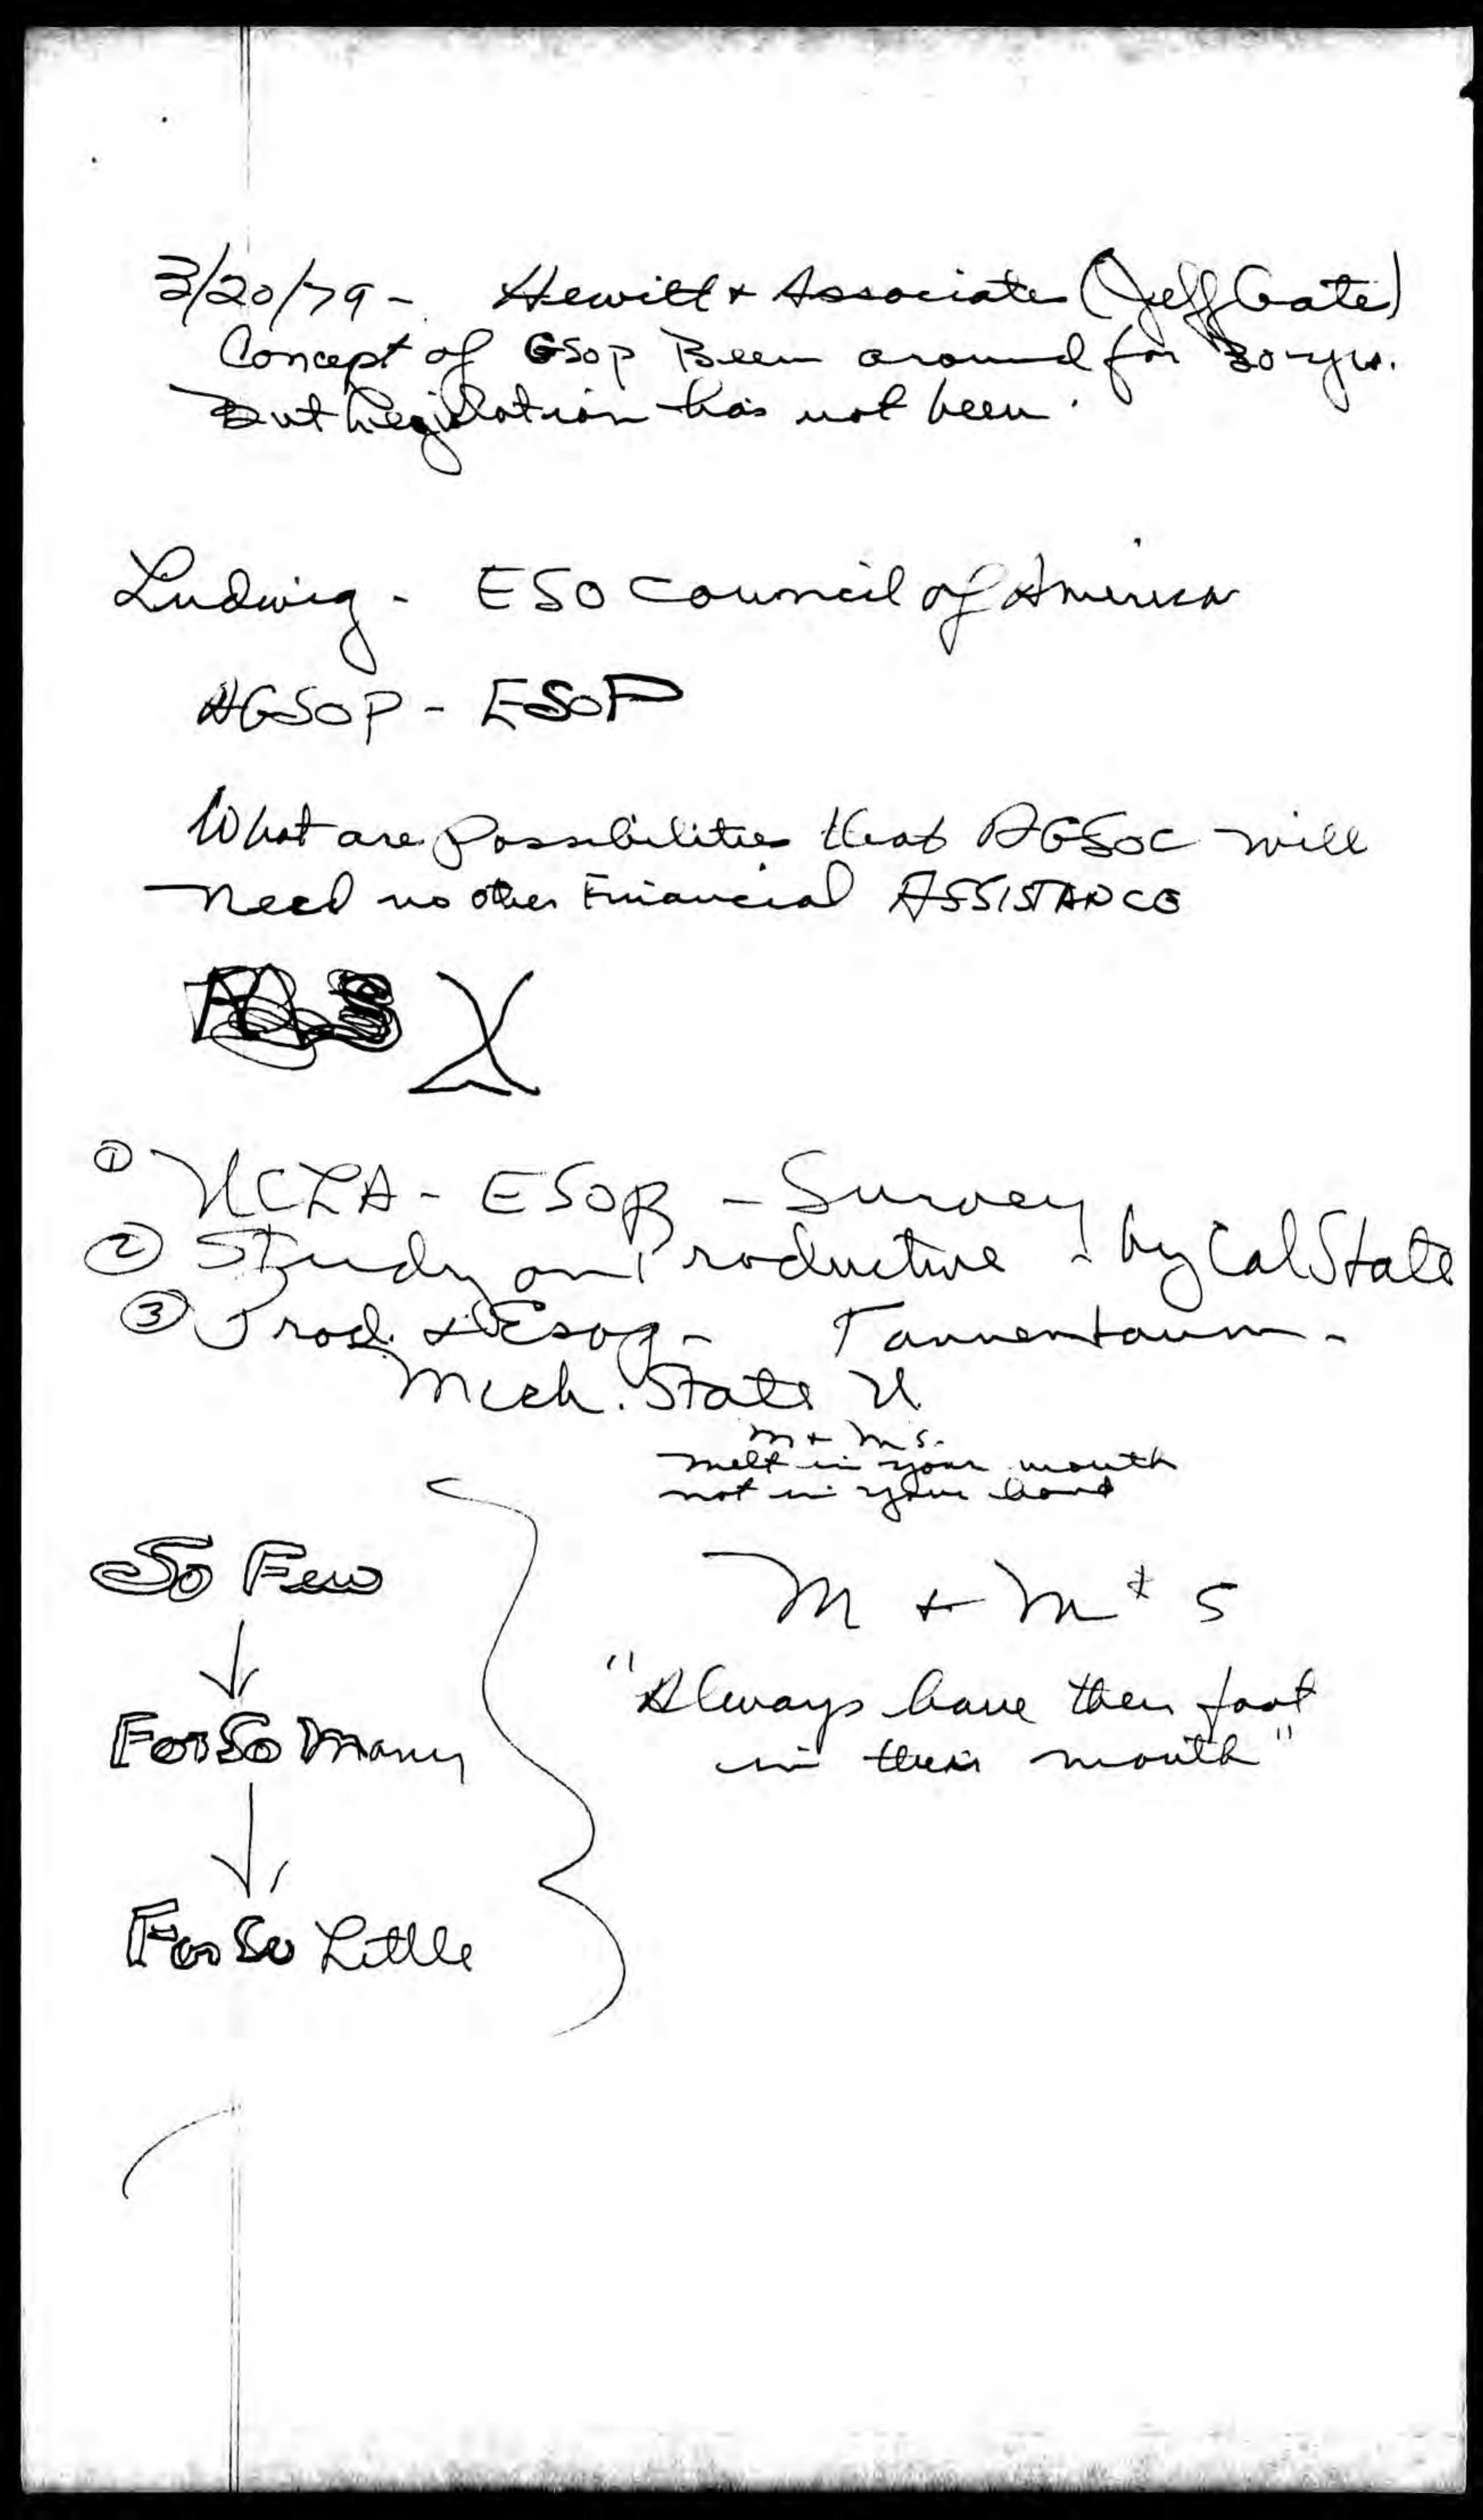 3/20/79 - Hewitt & Associates (Jeff Gates)
Concept of GSOP Been around for 30-yrs.
But Legislation has not been.
Ludwig - ESO Council of America
AGSOP - ESOP
What are possibilities that AGSOC will
need no other Financial ASSISTANCE
① UCLA - ESOP - Survey
② Study on Productive - by Cal State
③ Prod. & Esop - Tannenbaum -
Mich. State U
M & M s.
melt in your mouth
not in your hand
So Few
M & M s
For So Many
"Always have their foot
in their mouth"
For So Little